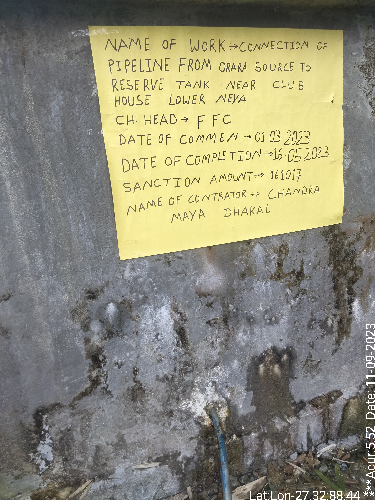 NAME OF WORK→CONNECTION OF
PIPELINE FROM ORARA SOURCE TO
RESERVE TANK NEAR CLUB
HOUSE LOWER NEYA
CH. HEAD→ F F C
DATE OF COMMEN→01 03 2023
DATE OF COMPLETION→16-05 2023
SANCTION AMOUNT→ 161017
NAME OF CONTRATOR→ CHANDRA
MAYA DHAKAL
Lat,Lon-27.32,88.44
***Acur:5.52 Date:11-09-2023